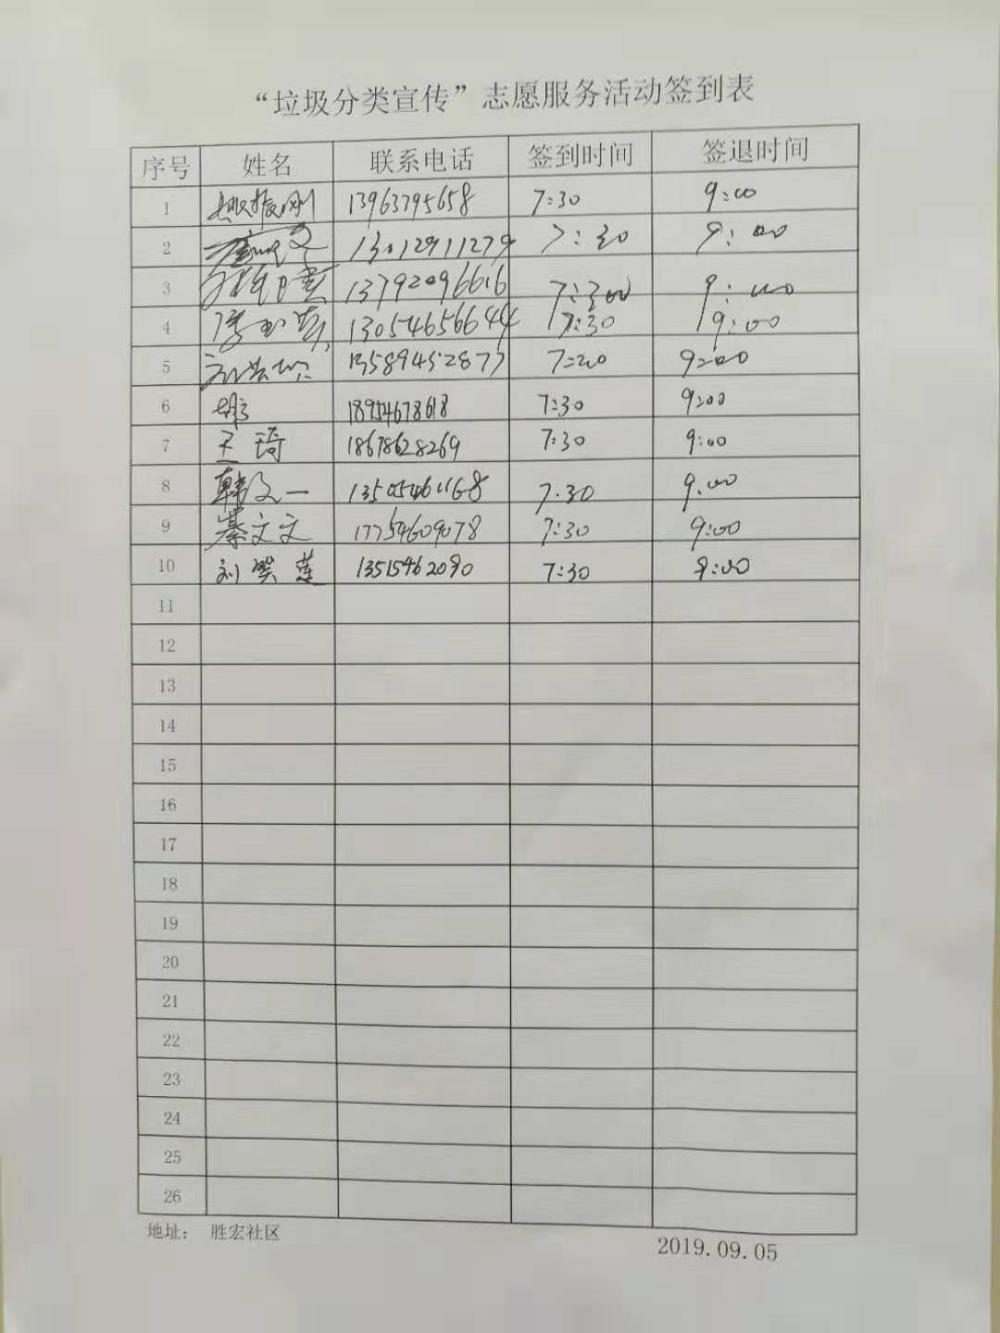 “垃圾分类宣传”志愿服务活动签到表
序号 姓名 联系电话 签到时间 签退时间
1 13963795658 7:30 9:00
2 13012911279 7:30 9:00
3 13792096616 7:300 9:00
4 13054656644 17:30 19:00
5 13589452877 9:00
6 18954678618 7:30 9:00
7 王琦 18678628269 7:30 9:00
8 韩文一 7.30 9.00
9 綦文文 17754609078 7:30 9:00
10 刘翠莲 13515462090 7:30 9:00
11
12
13
14
15
16
17
18
19
20
21
22
23
24
25
26
地址： 胜宏社区
2019.09.05